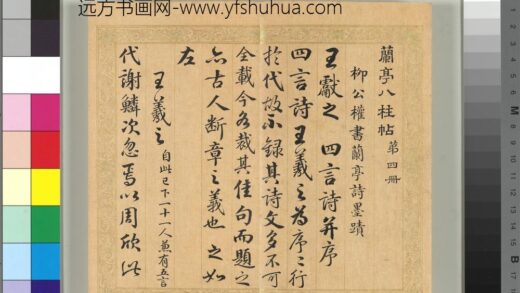 远方书画网-www.yfshuhua.com
蘭亭八柱帖 第四冊
柳公權書蘭亭詩墨蹟
王獻之 四言詩并序
四言詩王羲之為序〻行
於代故不錄其詩文多不可
全載今各裁其佳句而題之
亦古人斷章之義也 之如
左
王羲之 自此已下一十一人兼有五言
代謝鱗次忽焉以周欣此